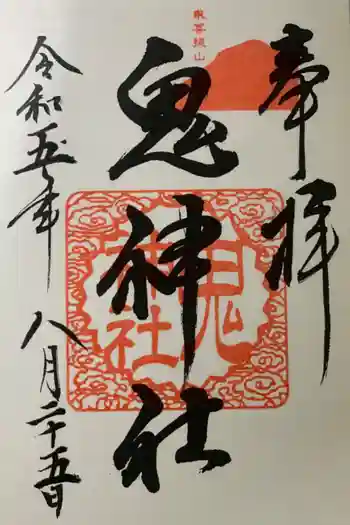 奉拝
東吾嬬山
鬼神社
鬼神社
令和五年
八月二十五日